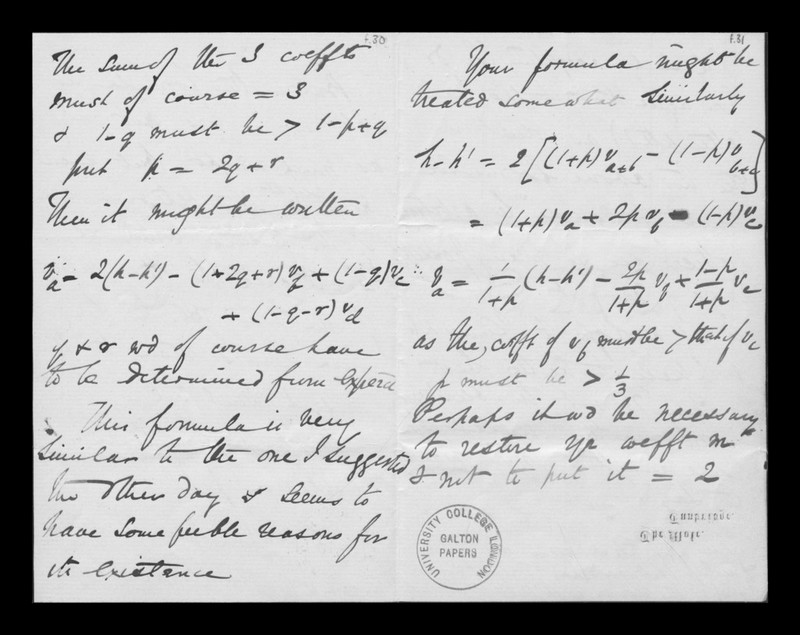 f.30
The sum of the 3 coeffts
must of course = 3
& 1-q must be > 1-p+q
put p = 2q+r
Then it might be written
v_a = 2(h-h') - (1+2q+r) v_b + (1-q) v_c
+ (1-q-r) v_d
q & r wd of course have
to be determined from expera
This formula is very
similar to the one I suggested
the other day & seems to
have some feeble reasons for
its existence
f.31
Your formula might be
treated somewhat similarly
h-h' = 2[(1+p)v_{a+b} - (1-p)v_{b+c}]
= (1+p)v_a + 2p v_b - (1-p)v_c
∴ v_a = 1/(1+p) (h-h') - 2p/(1+p) v_b + (1-p)/(1+p) v_c
as the coefft of v_b must be > that of v_c
p must be > 1/3
Perhaps it wd be necessary
to restore yr coefft m
& not to put it = 2
The Mote.
Tunbridge.
UNIVERSITY COLLEGE LONDON
GALTON
PAPERS